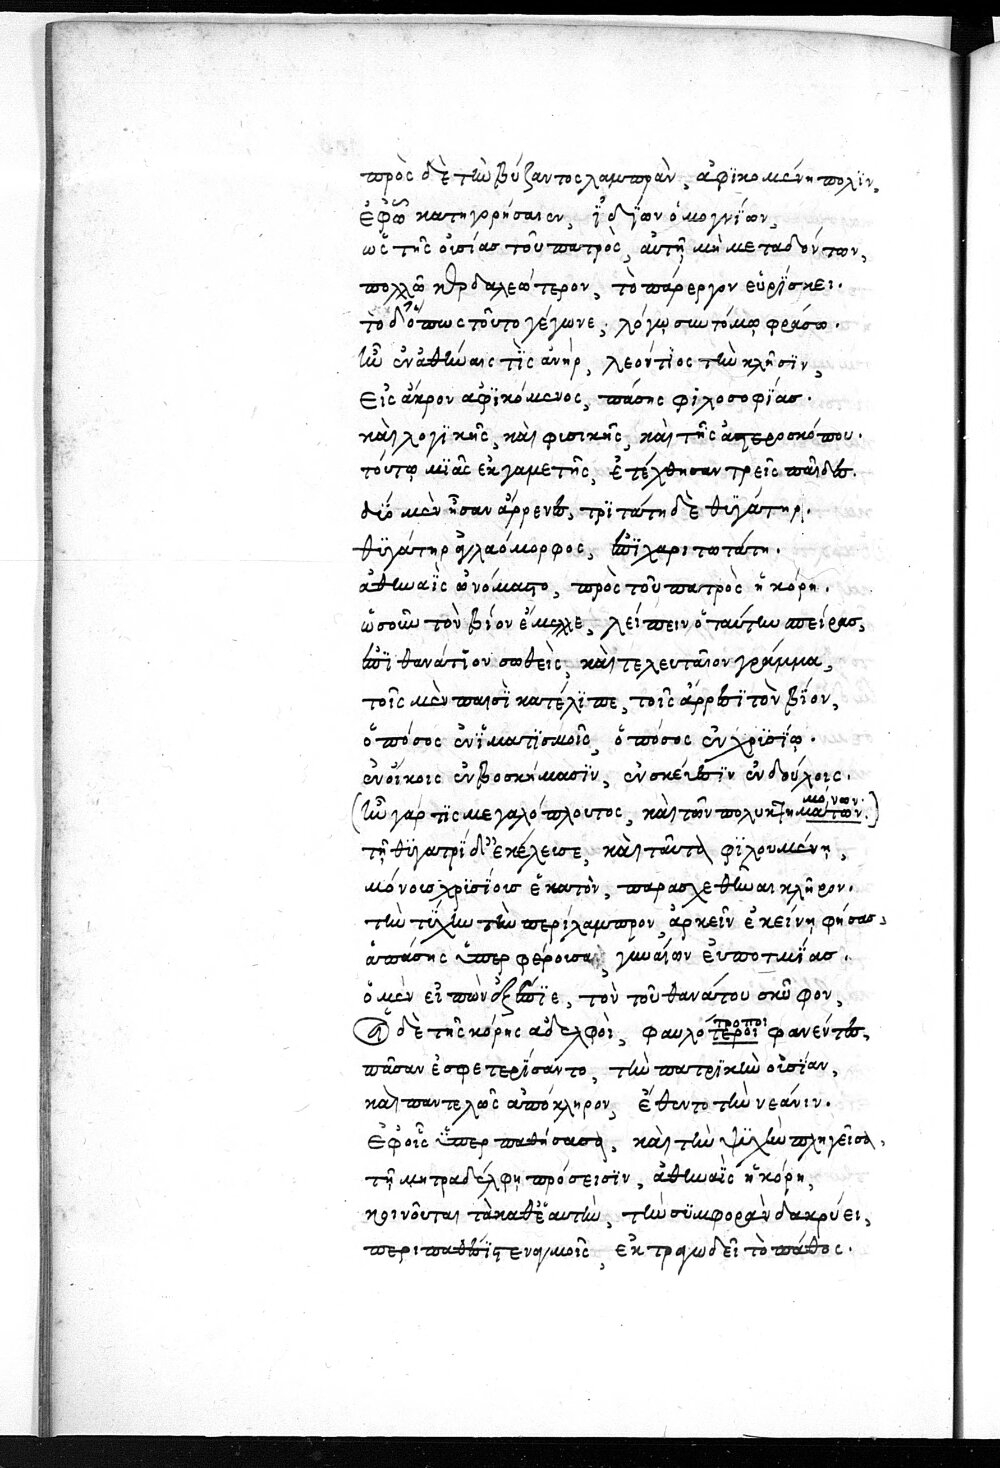 πρὸς δὲ τὴν βύζαντος λαμπρὰν, ἀφϊκομένη πολϊν,
ἐφῷ κατηγορήσαιεν, ϊδϊων ὁμογνϊων,
ὡς τῆς οὐσίας τοῦ πατρὸς, αὐτῇ μὴ μεταδόντων,
πολλῶ κερδαλεώτερον, τὸ πάρεργον εὑρϊσκει.
τὸ δ' ὅπως τοῦτο γέγωνε, λόγω συντόμω φράσω.
ἦν ἐν ἀθήναις τῒς ἀνὴρ, λεοντϊος τὴν κλῆσϊν,
εἰς ἄκρον ἀφϊκόμενος, πάσης φιλοσοφϊας.
καὶ λογϊκῆς, καὶ φυσικῆς, καὶ τῆς ἀστεροσκόπου.
τούτῳ μϊᾶς ἐκ γαμετῆς, ἐτέχθησαν τρεῖς παῖδες.
δύο μὲν ἦσαν ἄρρενες, τρϊτάτη δὲ θϋγάτηρ.
θϋγάτηρ ἀγλαόμορφος, ἐπϊχαριτωτάτη.
ἀθηναῒς ὠνόμαστο, πρὸς τοῦ πατρὸς ἡ κόρη.
ὡς οὖν τὸν βϊον ἔμελλε, λείπειν ὁ ταύτην σπείρας,
ἐπϊ θανάτϊον σωθεὶς, καὶ τελευταῖον γράμμα,
τοῖς μὲν παισῒ κατέλϊπε, τοῖς ἄρρεσϊ τὸν βϊον,
ὁπόσος ἐν ϊματϊσμοῖς, ὁπόσος ἐν χρϋσϊῳ.
ἐν οἴκοις ἐν βοσκήμασϊν, ἐν σκεύεσϊν ἐν δούλοις.
(ἦν γάρ τις μεγαλόπλουτος, καὶ τῶν πολυκτημάτων. μόνων.)
τῇ θϋγατρϊ δ' ἐκέλευσε, καὶ ταῦτα φϊλουμένῃ,
μόνοις χρϋσϊοις ἑκατὸν, παρασχεθῆναι κλῆρον.
τὴν τύχην τὴν περίλαμπρον, ἀρκεῖν ἐκείνη φήσας,
ἁπάσης ὑπερφέρουσαν, γυναίων εὐποτμϊας.
ὁ μὲν εἰπὼν ἐξέπϊε, τὸν τοῦ θανάτου σκύφον,
οἱ δὲ τῆς κόρης ἀδελφοὶ, φαυλότεροι τροποι φανέντες,
πᾶσαν ἐσφετερίσαντο, τὴν πατρϊκὴν οὐσϊαν,
καὶ παντελῶς ἀπόκληρον, ἔθεντο τὴν νεάνιν.
ἐφ οἷς ὑπερπαθήσασα, καὶ τὴν ψϋχὴν πληγεῖσα,
τῇ μητραδέλφῃ πρόσεισϊν, ἀθηναῒς ἡ κόρη,
κοινοῦται τὰ καθ' ἑαυτὴν, τὴν σϋμφορὰν δακρύει,
περιπαθέσϊ στεναγμοῖς, ἐκτραγωδεῖ τὸ πάθος.